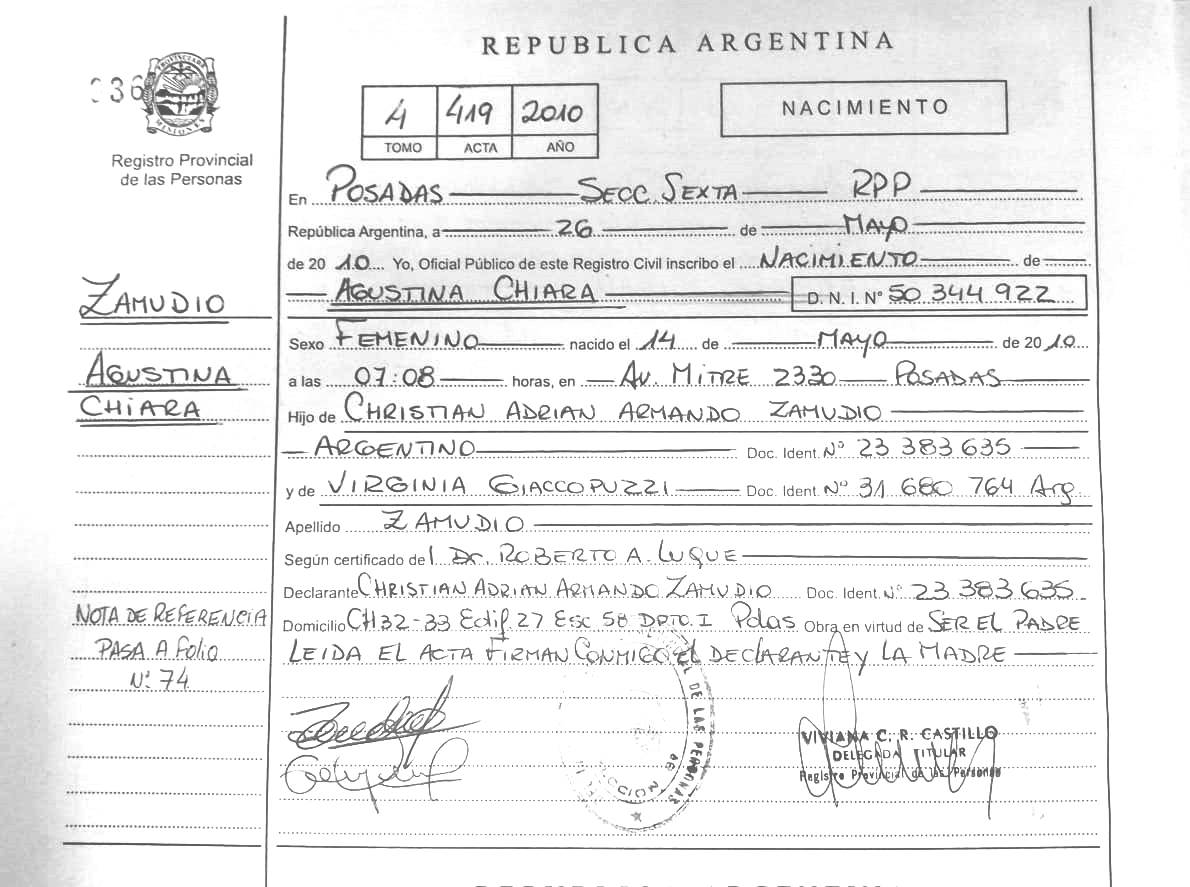 REPUBLICA ARGENTINA
036
PROVINCIA DE MISIONES
Registro Provincial
de las Personas
4 419 2010
TOMO ACTA AÑO
NACIMIENTO
En POSADAS SECC. SEXTA RPP
República Argentina, a 26 de MAYO
de 2010 Yo, Oficial Público de este Registro Civil inscribo el NACIMIENTO de
AGUSTINA CHIARA D. N. I. Nº 50 344 922
ZAMUDIO
AGUSTINA
CHIARA
Sexo FEMENINO nacido el 14 de MAYO de 2010
a las 07:08 horas, en AV. MITRE 2330 POSADAS
Hijo de CHRISTIAN ADRIAN ARMANDO ZAMUDIO
ARGENTINO Doc. Ident. Nº 23 383 635
y de VIRGINIA GIACCOPUZZI Doc. Ident. Nº 31 680 764 Arg.
Apellido ZAMUDIO
Según certificado de l Dr. ROBERTO A. LUQUE
Declarante CHRISTIAN ADRIAN ARMANDO ZAMUDIO Doc. Ident. Nº 23 383 635
Domicilio CH32-33 Edif. 27 Esc 58 DPTO. I Pdas Obra en virtud de SER EL PADRE
LEIDA EL ACTA FIRMAN CONMIGO EL DECLARANTE y LA MADRE
NOTA DE REFERENCIA
PASA A folio
Nº 74
DE LAS PERSONAS
VIVIANA C. R. CASTILLO
DELEGADA TITULAR
Registro Provincial de las Personas
REPUBLICA ARGENTINA